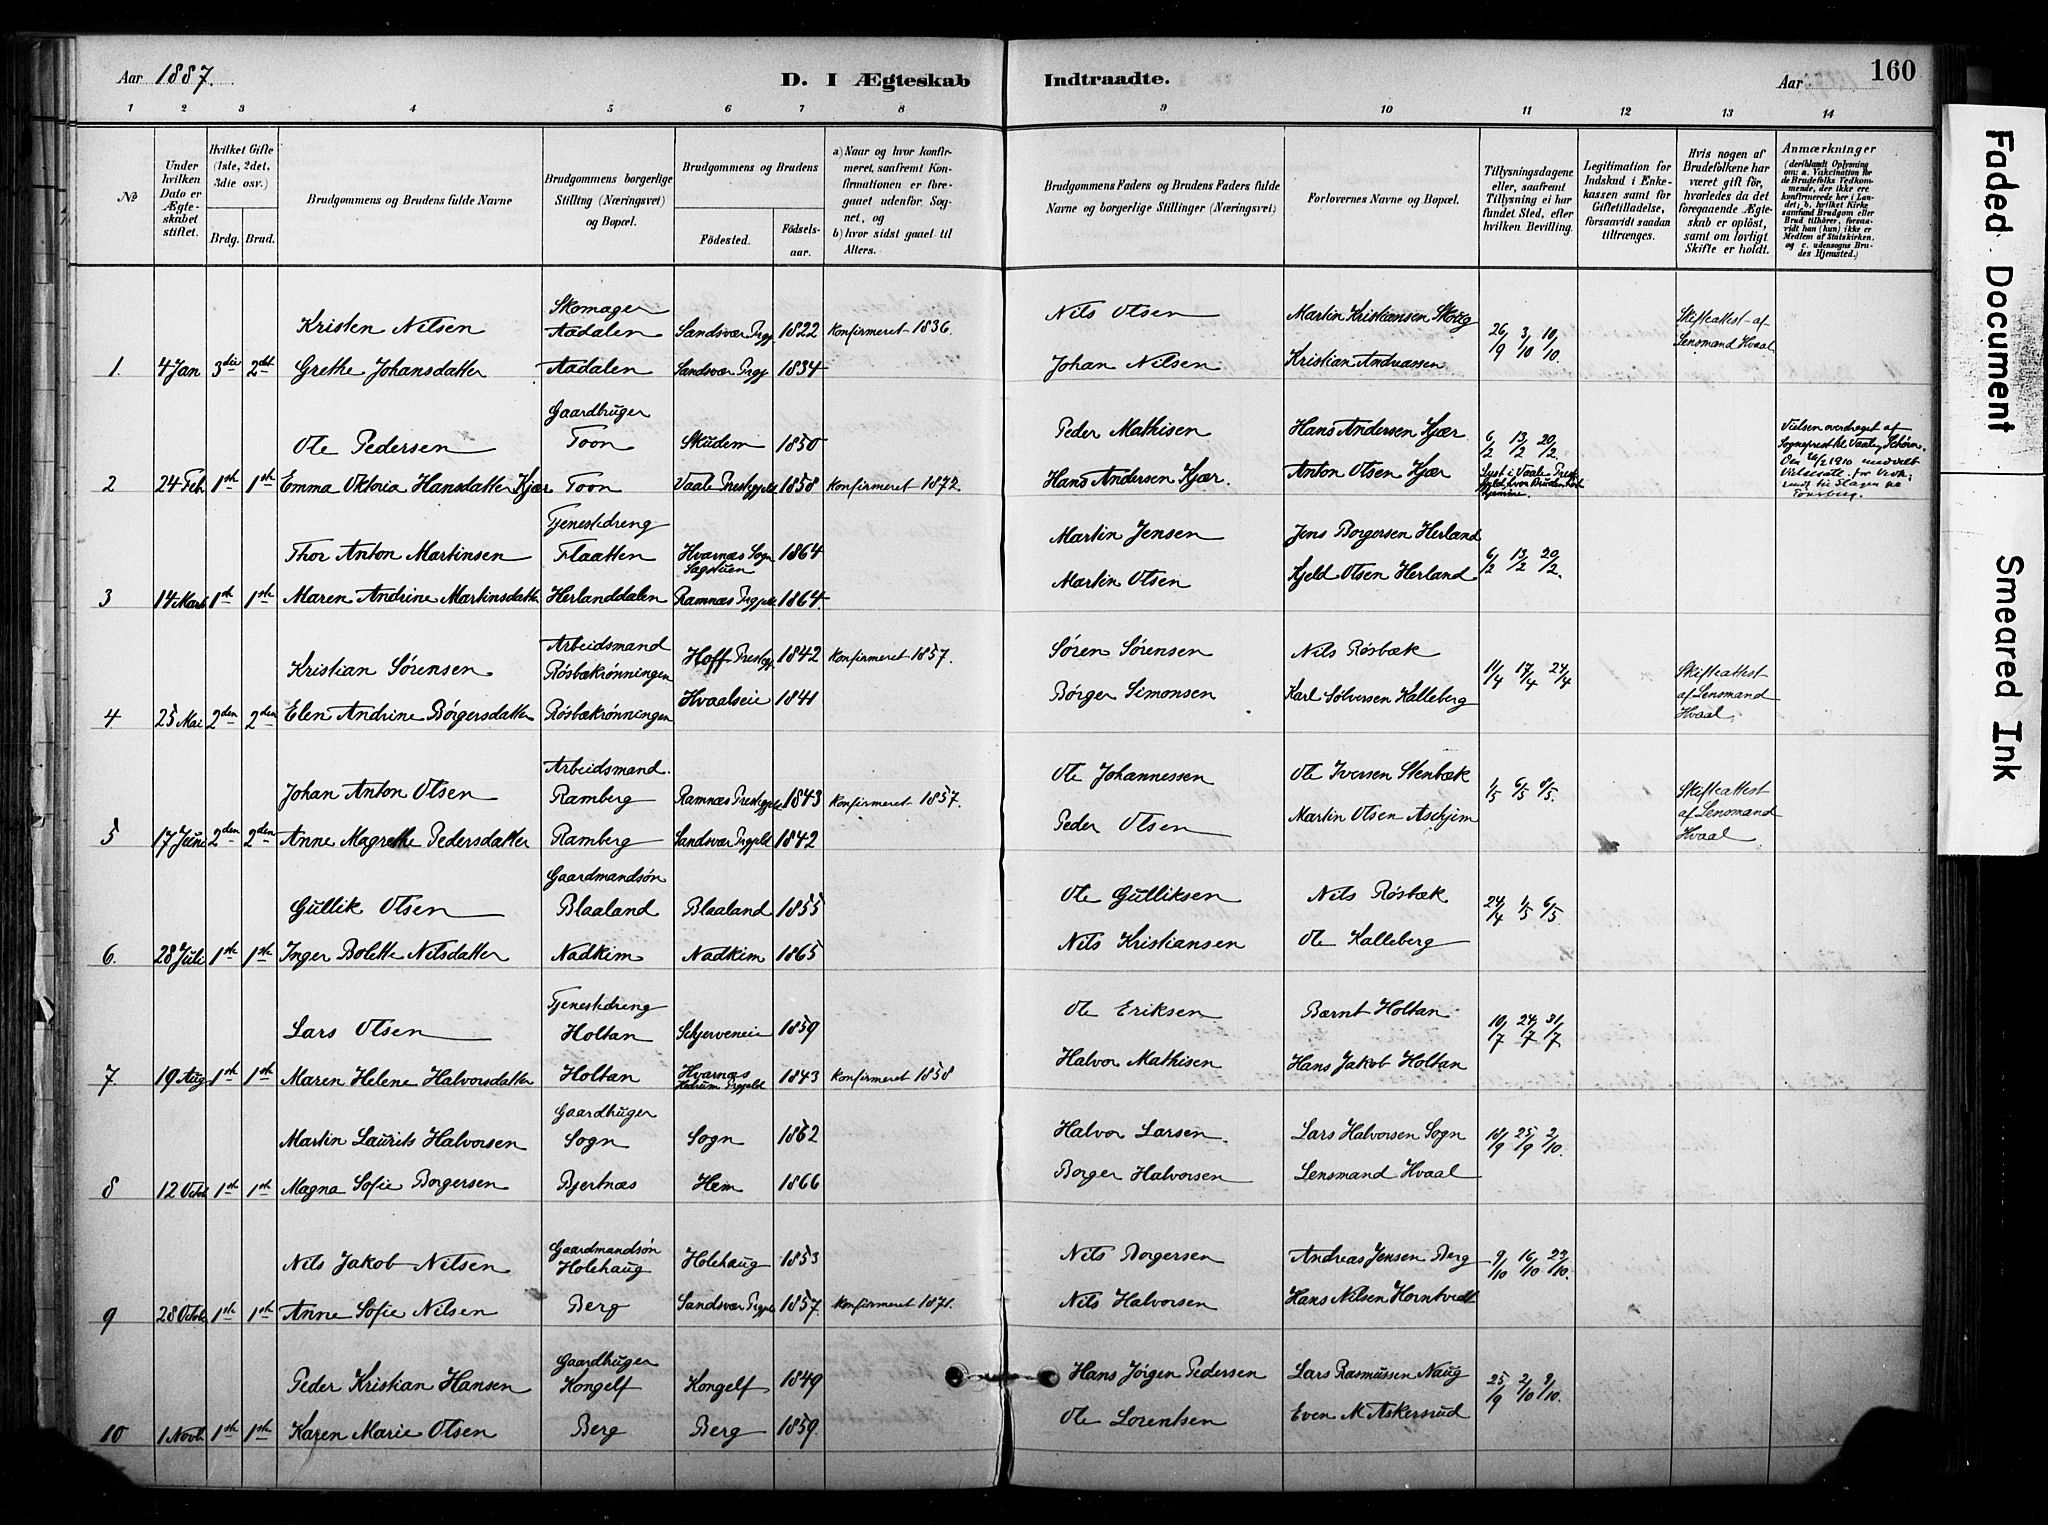 Aar 1887.
D. I Ægteskab Indtraadte.
Aar
160
1 2 3 4 5 6 7 8 9 10 11 12 13 14
No
Under hvilken Dato er Ægteskabet stiftet.
Hvilket Gifte (1ste, 2det, 3die osv.)
Brdg. Brud.
Brudgommens og Brudens fulde Navne
Brudgommens borgerlige Stilling (Næringsvei) og Bopæl.
Brudgommens og Brudens
Födested.
Födselsaar.
a) Naar og hvor konfirmeret, saafremt Konfirmationen er foregaaet udenfor Sognet, og
b) hvor sidst gaaet til Alters.
Brudgommens Faders og Brudens Faders fulde Navne og borgerlige Stillinger (Næringsvei)
Forlovernes Navne og Bopæl.
Tillysningsdagene eller, saafremt Tillysning ei har fundet Sted, efter hvilken Bevilling.
Legitimation for Indskud i Enkekassen samt for Giftetilladelse, forsaavidt saadan tiltrænges.
Hvis nogen af Brudefolkene har været gift för, hvorledes da det foregaaende Ægteskab er oplöst, samt om lovligt Skifte er holdt.
Anmærkninger
(deriblandt Oplysning om: a. Vakcination for de Brudefolks Vedkommende, der ikke ere konfirmerede her i Landet; b. hvilket Kirkesamfund Brudgom eller Brud tilhörer, forsaavidt han (hun) ikke er Medlem af Statskirken, og c. udensogns Brudes Hjemsted.)
Skomager
Kristen Nilsen Aadalen Sandsvær Prgj 1822 Konfirmeret 1836. Nils Olsen Martin Kristiansen Skoug 26/9 3/10 10/10 Skifteattest af Lensmand Hvaal
1. 4 Jan 3die 2det Grethe Johansdatter Aadalen Sandsvær Prgj 1834 Johan Nilsen Kristian Andreassen
Gaardbruger
Ole Pedersen Toon Skudem 1850 Peder Mathisen Hans Andersen Kjær 6/2 13/2 20/2.
2 24 Feb 1ste 1ste Emma Oktoria Hansdatter Kjær Toon Vaale Prestegjeld 1858 Konfirmeret 1872. Hans Andersen Kjær. Anton Olsen Kjær
Lyst i Vaale Prestegjeld, hvor Bruden har hjemme
Vielsen overdraget af Sogneprest til Vaale, Schørn.
Tjenestedreng
Thor Anton Martinsen Flaatten Hvarnæs Sogn Sagstuen 1864 Martin Jensen Jens Borgersen Herland 6/2 13/2 20/2.
3 14 Marts 1ste 1ste Maren Andrine Martinsdatter Herlanddalen Ramnæs Prgjeld 1864 Martin Olsen Kjeld Olsen Herland
Arbeidsmand
Kristian Sørensen Røsbækrønningen Hoff Prestgj 1842 Konfirmeret 1857. Søren Sørensen Nils Røsbæk 11/4 17/4 24/4 Skifteattest af Lensmand Hvaal
4 25 Mai 2den 2den Elen Andrine Børgersdatter Røsbækrønningen Hvaalseie 1841 Børger Simonsen Karl Sølversen Kalleberg
Arbeidsmand.
Johan Anton Olsen Ramberg Ramnæs Prestegjeld 1843 Konfirmeret 1857. Ole Johannessen Ole Iversen Stenbæk 1/5 6/5 8/5. Skifteattest af Lensmand Hvaal
5 17 Juni 2den 2den Anne Magrethe Pedersdatter Ramberg Sandsvær Prgjeld 1842 Peder Olsen Martin Olsen Aschjem
Gaardmandsøn
Gullik Olsen Blaaland Blaaland 1855 Ole Gulliksen Nils Røsbæk 24/4 1/5 6/5
6. 28 Juli 1ste 1ste Inger Bolette Nilsdatter Nadkim Nadkim 1865 Nils Kristiansen Ole Kalleberg
Tjenestedreng
Lars Olsen Holtan Schjerveneie 1859 Ole Eriksen Bærnt Holtan 10/7 24/7 31/7
7 19 Aug 1ste 1ste Maren Helene Halvorsdatter Holtan Hvarnæs Hedrum Prgjeld 1843 Konfirmeret 1858 Halvor Mathisen Hans Jakob Holtan
Gaardbruger
Martin Laurits Halvorsen Sogn Sogn 1862 Halvor Larsen. Lars Halvorsen Sogn 18/9 25/9 2/10.
8 12 Octob 1ste 1ste Magna Sofie Borgersen Bjertnæs Hem 1866 Borger Halvorsen Lensmand Hvaal
Gaardmandsøn
Nils Jakob Nilsen Holehaug Holehaug 1853 Nils Borgersen Andreas Jensen Berg 9/10 16/10 23/10.
9 28 Octob 1ste 1ste Anne Sofie Nilsen Berg Sandsvær Prgjeld 1857. Konfirmeret 1871. Nils Halvorsen Hans Nilsen Horntvedt
Gaardbruger
Peder Kristian Hansen Kongelf Kongelf 1849 Hans Jørgen Pedersen Lars Rasmussen Naug 25/9 2/10 9/10.
10 1 Novb. 1ste 1ste Karen Marie Olsen Berg Berg 1859. Ole Lorentsen Even M Askersrud
Faded Document
Smeared Ink